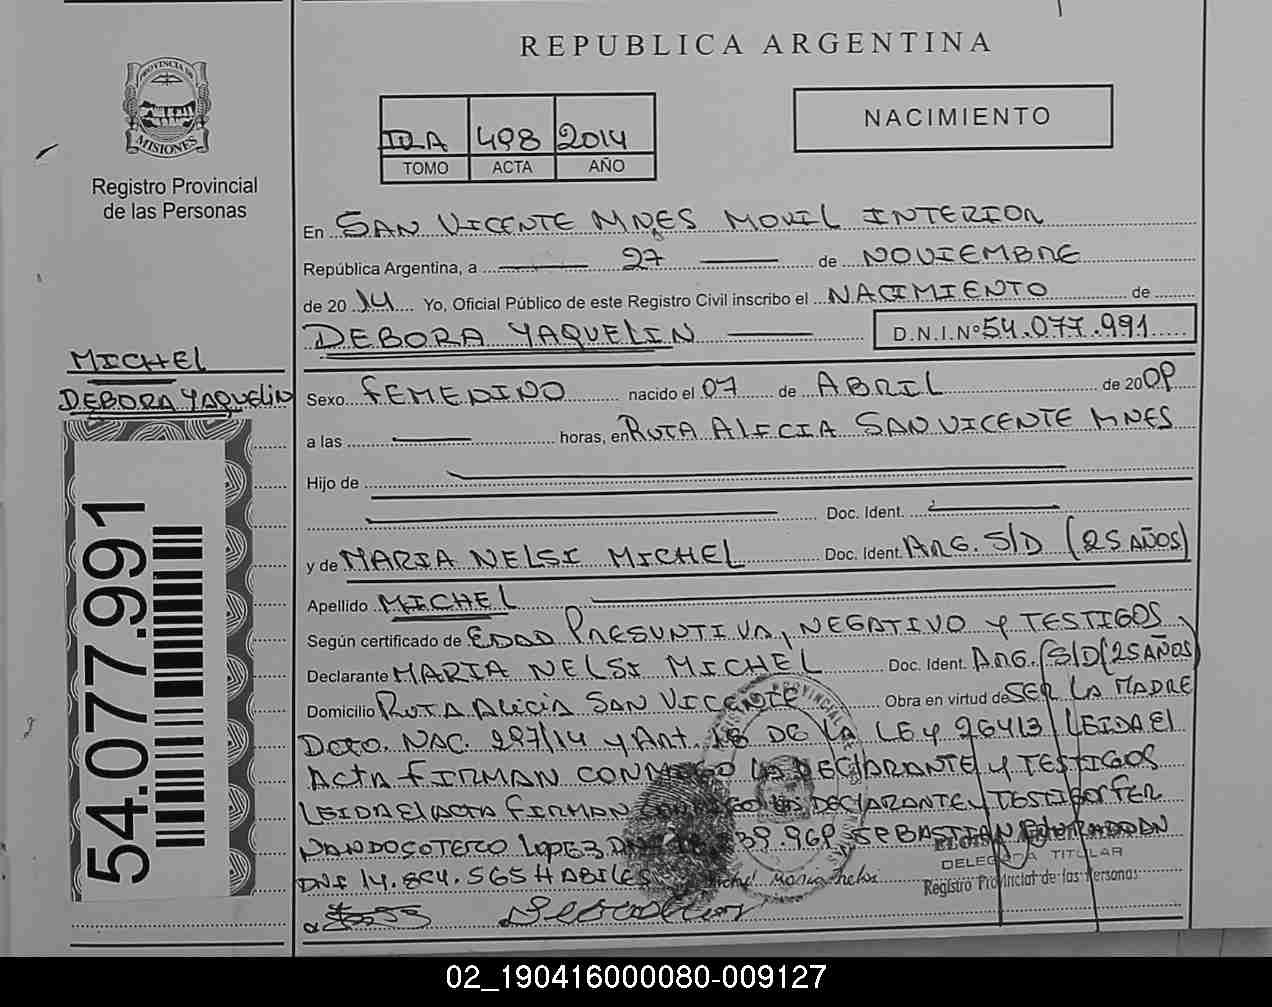 REPUBLICA ARGENTINA
PROVINCIA DE
MISIONES
Registro Provincial
de las Personas
498 2014
TOMO ACTA AÑO
NACIMIENTO
En SAN VICENTE MNES MOVIL INTERIOR
República Argentina, a 27 de NOVIEMBRE
de 20 14 Yo, Oficial Público de este Registro Civil inscribo el NACIMIENTO de
DEBORA YAQUELIN D.N.I.Nº 54.077.991
MICHEL
DEBORA YAQUELIN
54.077.991
Sexo FEMENINO nacido el 07 de ABRIL de 20
a las horas, en RUTA ALICIA SAN VICENTE MNES
Hijo de
Doc. Ident.
y de MARIA NELSI MICHEL Doc. Ident. ARG. S/D (25 AÑOS)
Apellido MICHEL
Según certificado de EDAD PRESUNTIVA, NEGATIVO Y TESTIGOS
Declarante MARIA NELSI MICHEL Doc. Ident. ARG. S/D (25 AÑOS)
Domicilio RUTA ALICIA SAN VICENTE Obra en virtud de SER LA MADRE
DCTO. NAC. 297/14 Y ART. DE LA LEY 26413 LEIDA EL
ACTA FIRMAN CONMIGO LA DECLARANTE Y TESTIGOS
LEIDA EL ACTA FIRMAN CONMIGO LA DECLARANTE Y TESTIGOS FER
NANDO SOTERO LOPEZ DNI SEBASTIAN
DNI 14.854.565 HABILES
DELEGADA TITULAR
Registro Provincial de las Personas
02_190416000080-009127